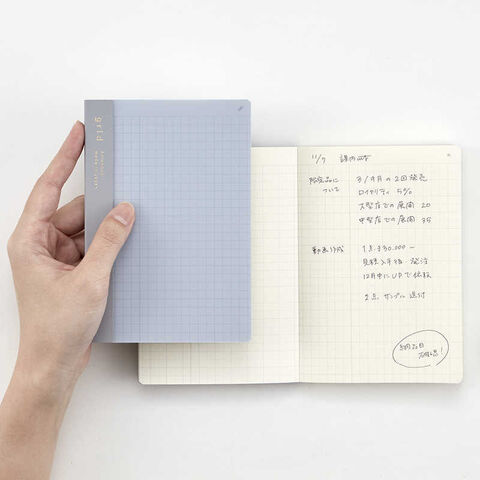 grid
11/7 課内MTG
新商品に 3/9月の2回発売
ついて ロイヤリティ 5%
大型店での展開 20
中型店での展開 35
動画作成 1点 ¥30,000-
見積入手後 発注
12月中にUPで依頼
2点 サンプル送付
納品日
確認!